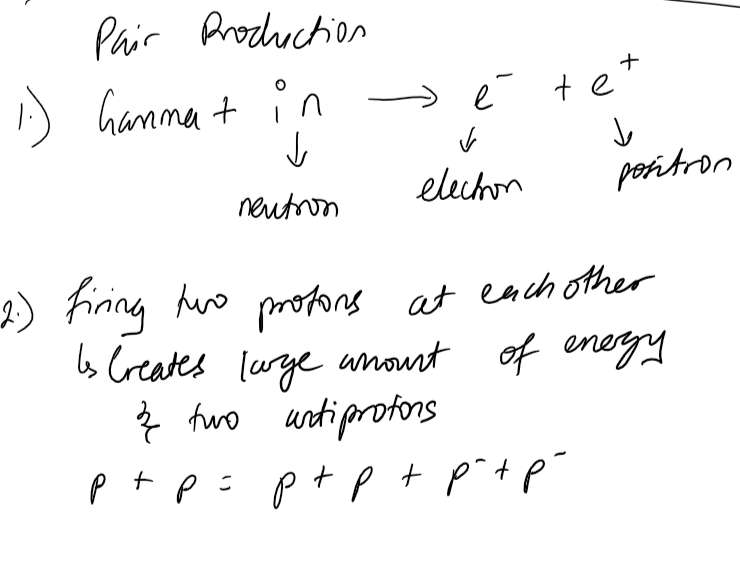 Pair Production
1.) Gamma + ⁰₁n → e⁻ + e⁺
↓ ↓ ↓
neutron electron positron
2.) firing two protons at each other
↳ Creates large amount of energy
& two antiprotons
p + p = p + p + p⁻ + p⁻